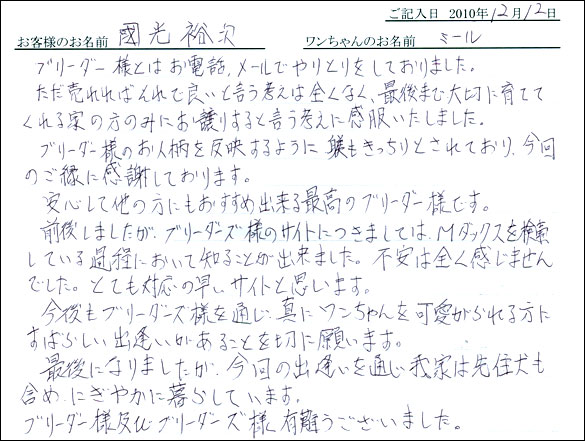 ご記入日 2010年12月12日
お客様のお名前 國光 裕次 ワンちゃんのお名前 ミール
ブリーダー様とはお電話、メールでやりとりをしておりました。
ただ売れればそれで良いと言う考えは全くなく、最後まで大切に育てて
くれる家の方のみにお譲りすると言う考えに感服いたしました。
ブリーダー様のお人柄を反映するように躾もきっちりとされており、今回
のご縁に感謝しております。
安心して他の方にもおすすめ出来る最高のブリーダー様です。
前後しましたが、ブリーダーズ様のサイトにつきましては、Mダックスを検索
している過程において知ることが出来ました。不安は全く感じません
でした。とても対応の早いサイトと思います。
今後もブリーダーズ様を通じ、真にワンちゃんを可愛がられる方に
すばらしい出逢いがあることを切に願います。
最後になりましたが、今回の出逢いを通じ我家は先住犬も
含め、にぎやかに暮らしています。
ブリーダー様及びブリーダーズ様、有難うございました。